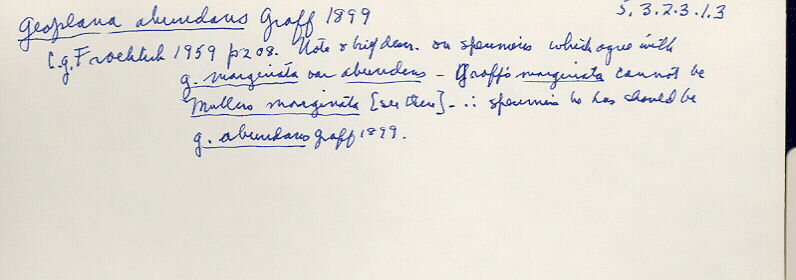 Geoplana abundans Graff 1899
5.3.2.3.1.3
C.g. Froehlich 1959 p208. Note & brief descr. on specimens which agree with
g. marginata var abundans - Graff's marginata cannot be
Mullers marginata [see there] - ∴ specimens he has should be
g. abundans graff 1899.